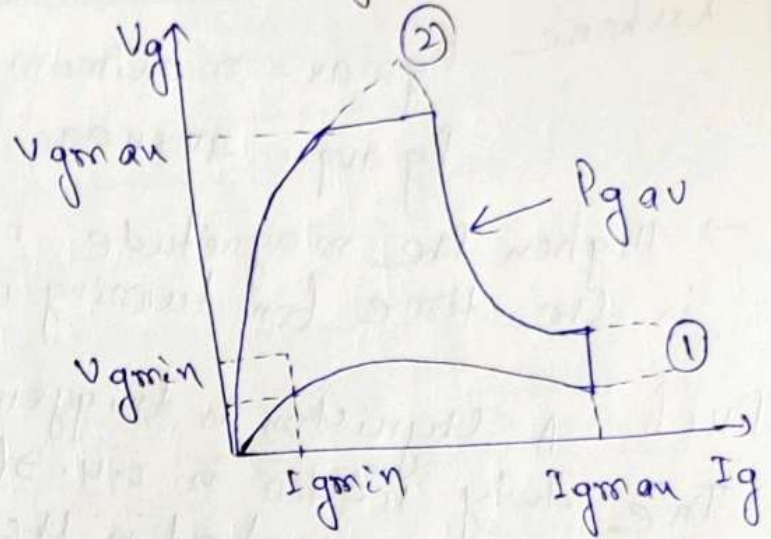 Vg
②
Vgmax
Pgav
①
Vgmin
Igmin
Igmax
Ig